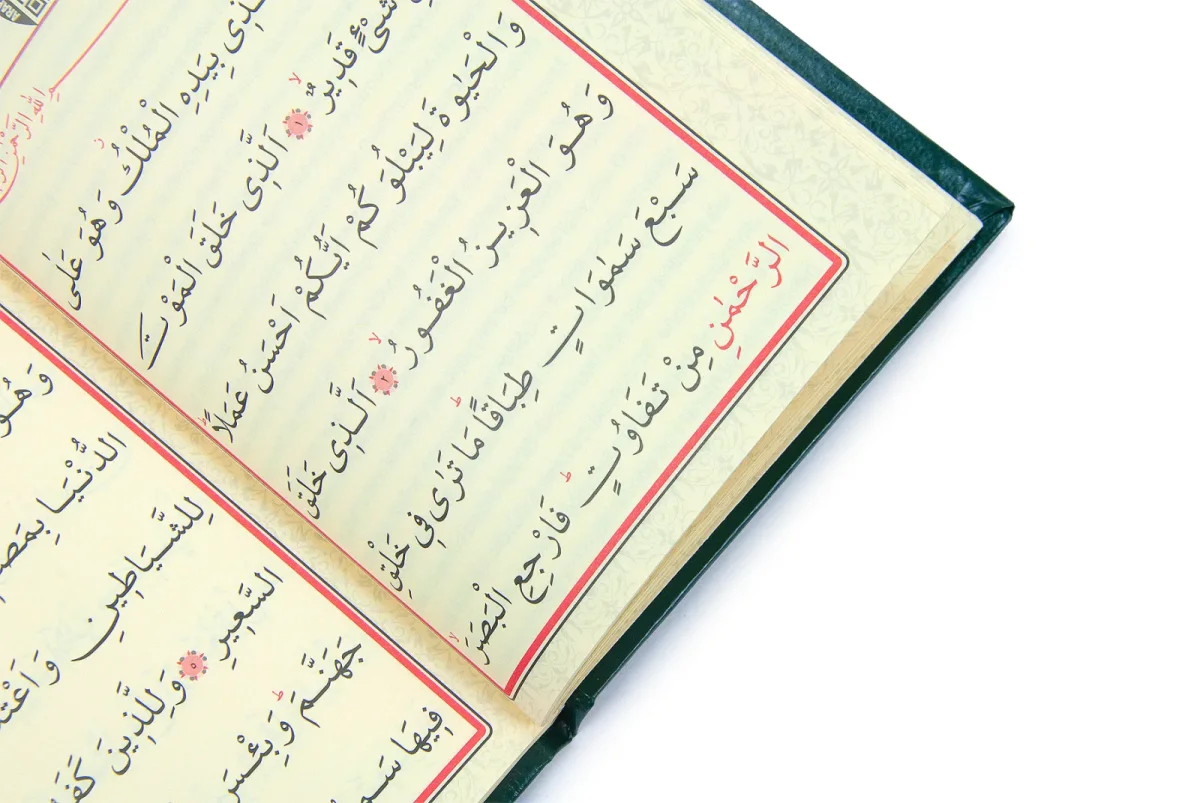 اللّٰهِ الرَّحْمٰنِ
بِيَدِهِ الْمُلْكُ وَهُوَ عَلٰى
شَىْءٍ قَدِيرٌۙ ﴿١﴾ اَلَّذِى خَلَقَ الْمَوْتَ
وَالْحَيٰوةَ لِيَبْلُوَكُمْ اَيُّكُمْ اَحْسَنُ عَمَلًاۜ
وَهُوَ الْعَزِيزُ الْغَفُورُۙ ﴿٢﴾ اَلَّذِى خَلَقَ
سَبْعَ سَمٰوَاتٍ طِبَاقًاۜ مَا تَرٰى فِى خَلْقِ
الرَّحْمٰنِ مِنْ تَفَاوُتٍۜ فَارْجِعِ الْبَصَرَۙ
وَهُوَ
الدُّنْيَا
لِلشَّيَاطِينِ
السَّعِيرِ ﴿٥﴾ وَلِلَّذِينَ
جَهَنَّمَۜ وَبِئْسَ
فِيهَا